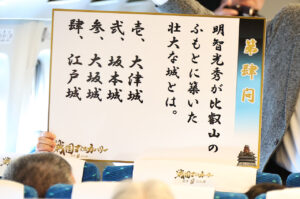 第肆問
明智光秀が比叡山の
ふもとに築いた
壮大な城とは。
壱、大津城
弐、坂本城
参、大坂城
肆、江戸城